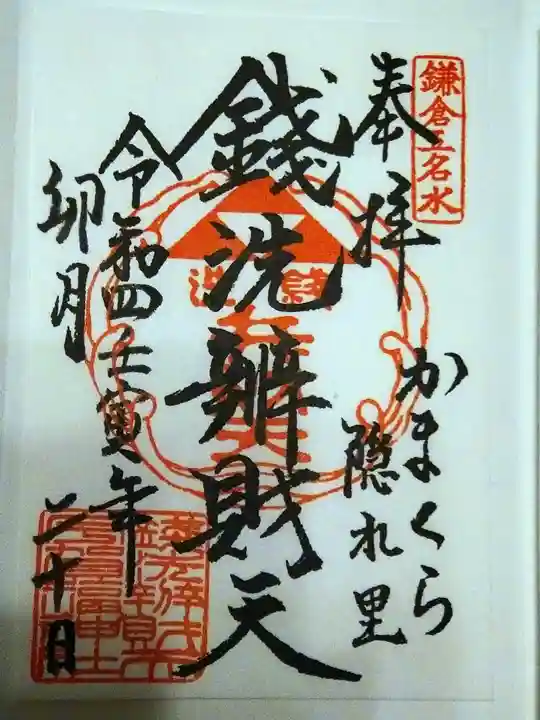 鎌倉五名水
奉拝
かまくら
隠れ里
銭洗
銭洗辨財天
令和四壬寅年
卯月
二十日